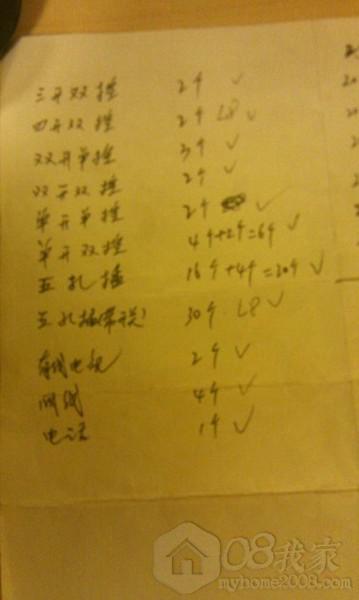 三开双控 2个 ✓
四开双控 2个 L8 ✓
双开单控 3个 ✓
双开双控 2个 ✓
单开单控 2个 ✓
单开双控 4个+2个=6个 ✓
五孔插 16个+4个=20个 ✓
五孔插(带开关) 30个 L8 ✓
有线电视 2个 ✓
网线 4个 ✓
电话 1个 ✓
08我家
myhome2008.com